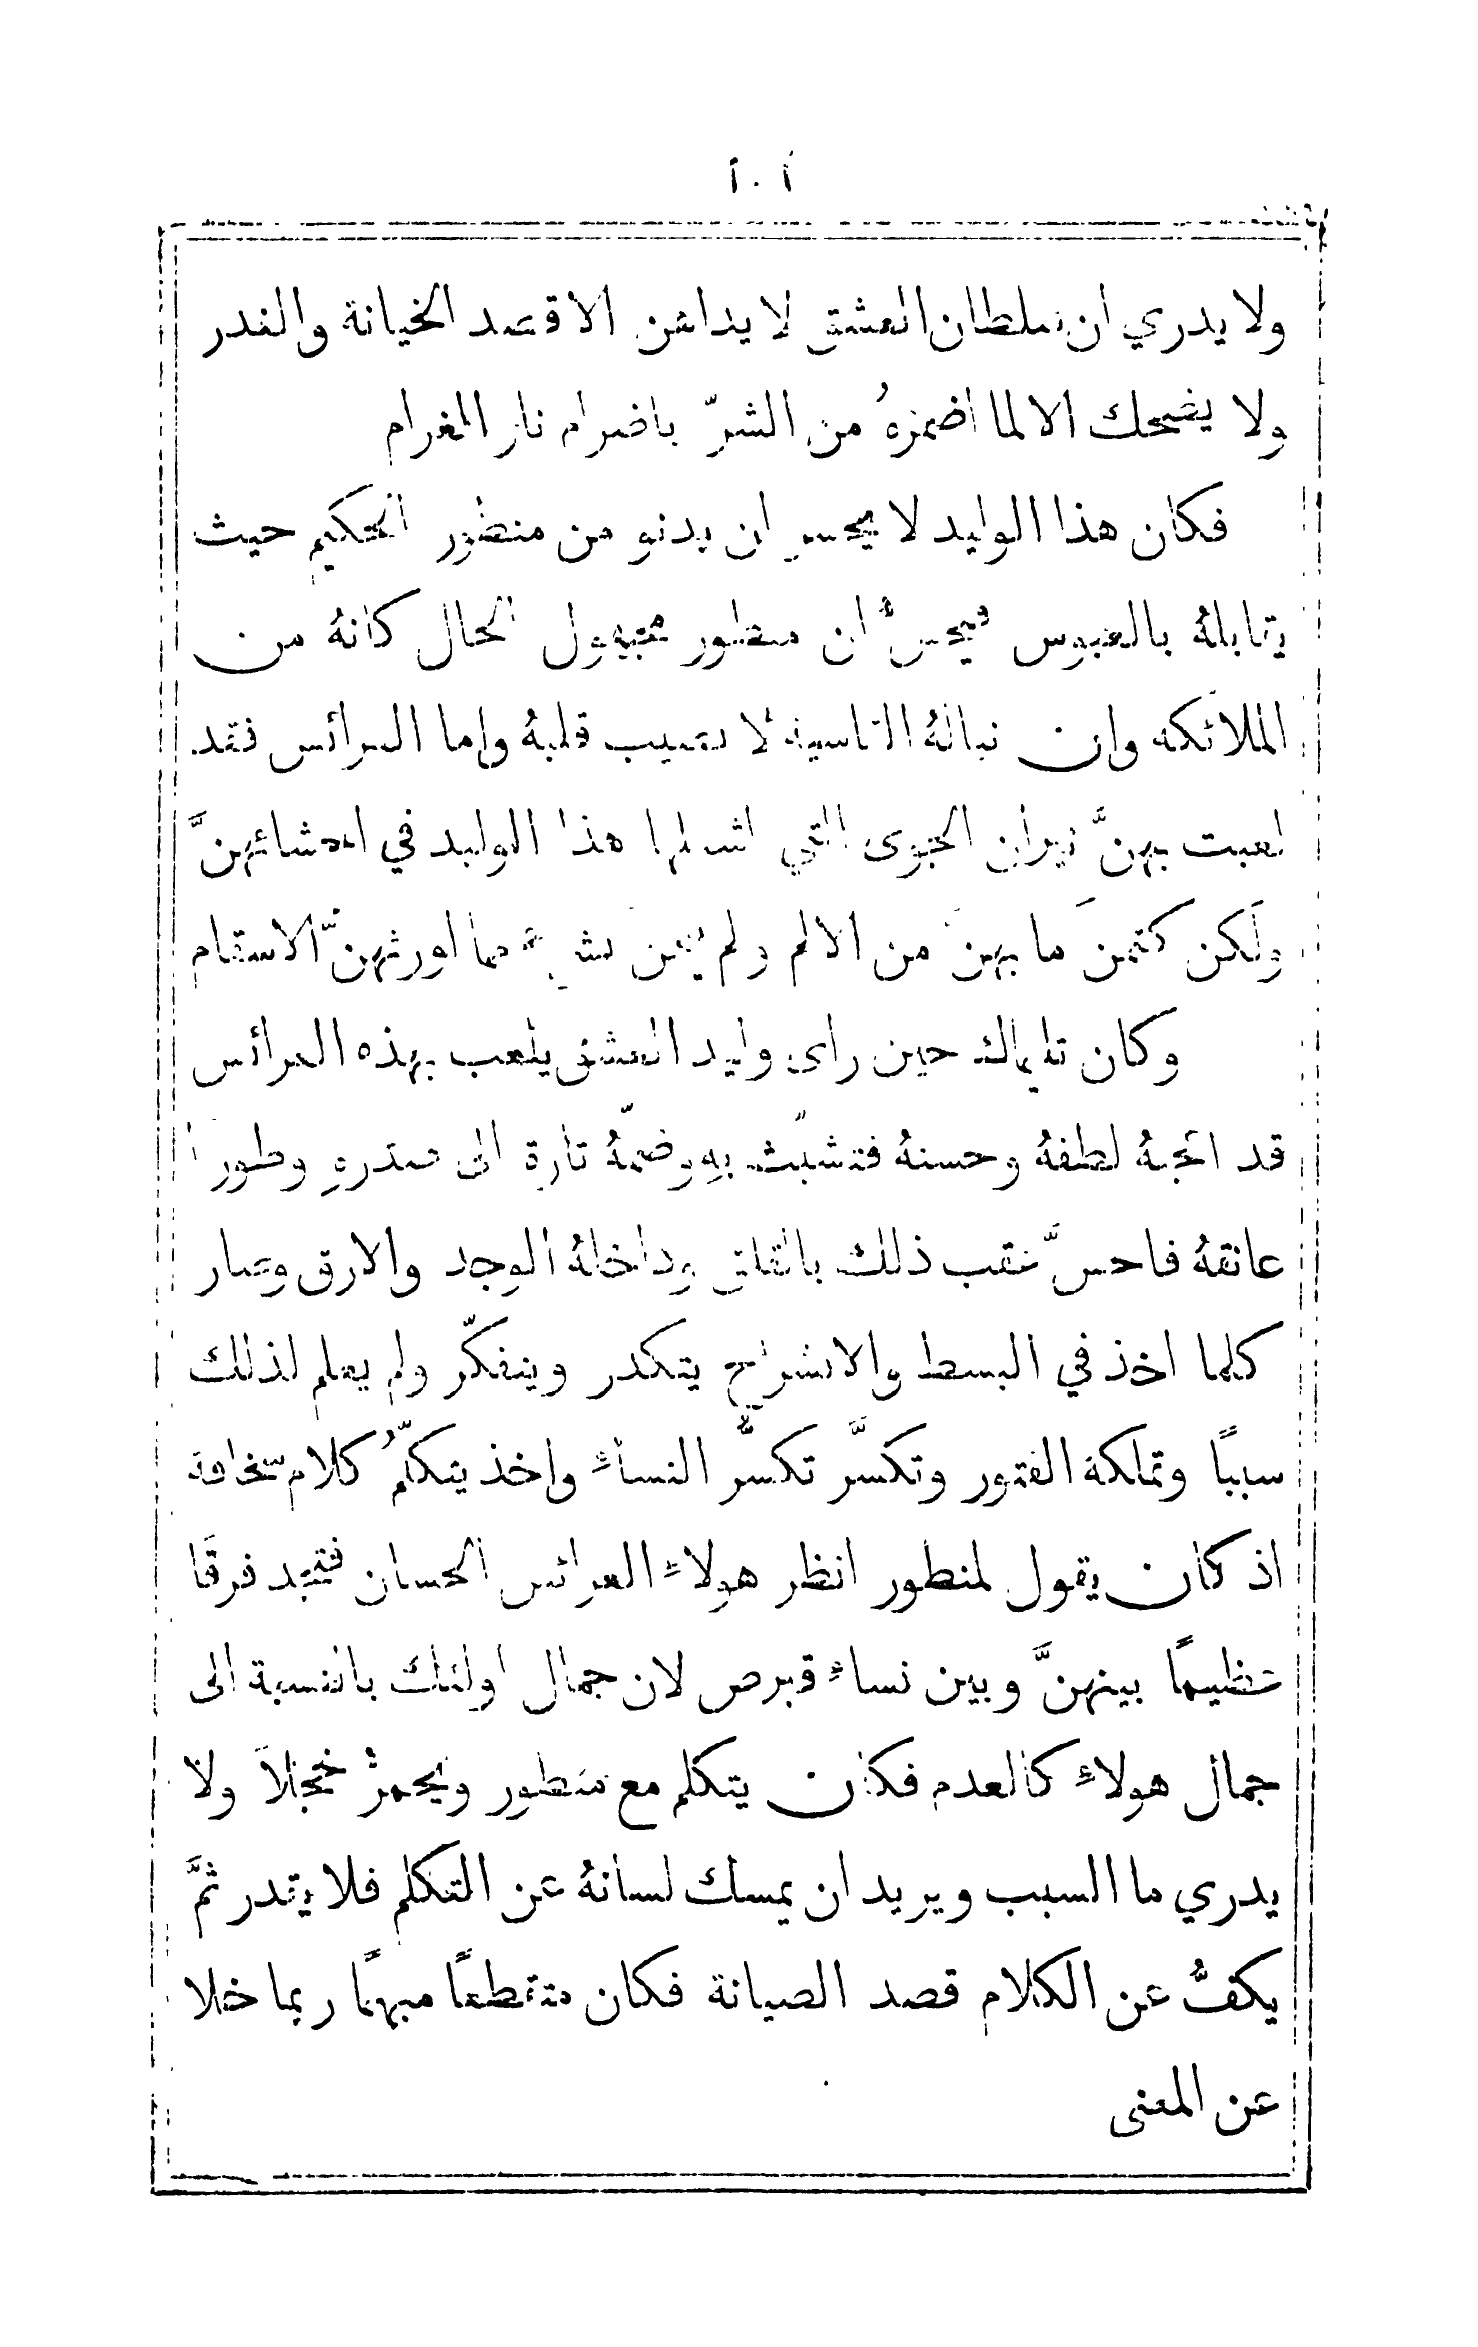 ١٠١
ولا يدري ان سلطان العشق لا يداعن الا قصد الخيانة والغدر
ولا يضحك الا لما اضمرهُ من الشرّ باضرام نار الغرام
فكان هذا الوليد لا يجسر ان يدنو من منطور الحكيم حيث
يقابلهُ بالعبوس فيحسُّ ان منطور مجهول الحال كانهُ من
الملائكه وان نبالهُ القاسية لا تصيب قلبهُ واما العرائس فقد
لعبت بهنَّ نيران الجوى التي اشعلها هذا الوليد في احشائهنَّ
ولكن كتمنَ ما بهنَّ من الالم ولم يبحن بشيءٍ مما اورثهنَّ الاسقام
وكان تليماك حين راى وليد العشق يلعب بهذه العرائس
قد اعجبهُ لطفهُ وحسنهُ فتشبَّث بهِ وضمَّهُ تارة الى صدرهِ وطورًا
عانقهُ فاحسَّ عقب ذلك بالقلق وداخلهُ الوجد والارق وصار
كلما اخذ في البسط والانشراح يتكدر ويتفكّر ولم يعلم لذلك
سببًا وتملكة الفتور وتكسَّر تكسُّر النساءِ واخذ يتكلَّمُ كلام سخافة
اذ كان يقول لمنطور انظر هولاءِ العرائس الحسان فتجد فرقًا
عظيمًا بينهنَّ وبين نساءِ قبرص لان جمال اولئك بالنسبة الى
جمال هولاءِ كالعدم فكان يتكلم مع منطور ويحمرُّ خجلاً ولا
يدري ما السبب ويريد ان يمسك لسانهُ عن التكلم فلا يقدر ثمَّ
يكفُّ عن الكلام قصد الصيانة فكان متقطعًا مبهمًا ربما خلا
عن المعنى